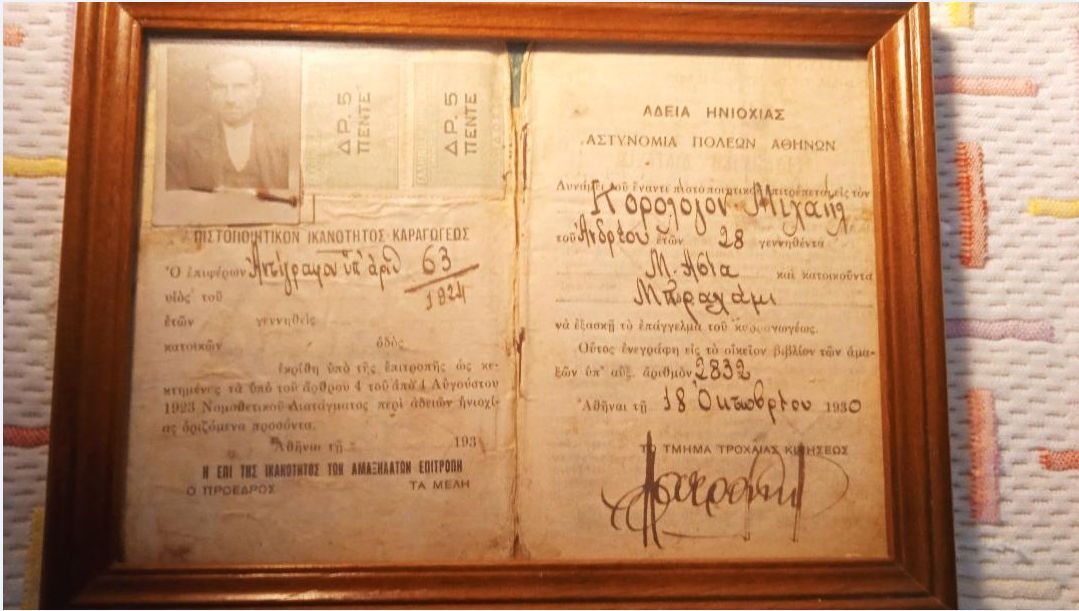 ΔΡ. 5
ΠΕΝΤΕ
ΔΡ. 5
ΠΕΝΤΕ
ΠΙΣΤΟΠΟΙΗΤΙΚΟΝ ΙΚΑΝΟΤΗΤΟΣ ΚΑΡΑΓΩΓΕΩΣ
Ὁ ἐπιφέρων Ἀντίγραφον ὑπ' ἀριθ 63
1924
υἱὸς τοῦ
ἐτῶν γεννηθεὶς
κατοικῶν ὁδὸς
ἐκρίθη ὑπὸ τῆς ἐπιτροπῆς ὡς κε-
κτημένος τὰ ὑπὸ τοῦ ἄρθρου 4 τοῦ ἀπὸ 4 Αὐγούστου
1923 Νομοθετικοῦ Διατάγματος περὶ ἀδειῶν ἡνιοχί-
ας ὁριζόμενα προσόντα.
Ἀθῆναι τῇ 193
Η ΕΠΙ ΤΗΣ ΙΚΑΝΟΤΗΤΟΣ ΤΩΝ ΑΜΑΞΗΛΑΤΩΝ ΕΠΙΤΡΟΠΗ
Ο ΠΡΟΕΔΡΟΣ ΤΑ ΜΕΛΗ
ΑΔΕΙΑ ΗΝΙΟΧΙΑΣ
ΑΣΤΥΝΟΜΙΑ ΠΟΛΕΩΝ ΑΘΗΝΩΝ
Δυνάμει τοῦ ἔναντι πιστοποιητικοῦ ἐπιτρέπεται εἰς τὸν
Κορολόγον Μιχαὴλ
τοῦ Ἀνδρέου ἐτῶν 28 γεννηθέντα
Μ. Ἀσία καὶ κατοικοῦντα
Μπραχάμι
νὰ ἐξασκῇ τὸ ἐπάγγελμα τοῦ καρραγωγέως.
Οὗτος ἐνεγράφη εἰς τὸ οἰκεῖον βιβλίον τῶν ἁμα-
ξῶν ὑπ' αὔξ. ἀριθμὸν 2832
Ἀθῆναι τῇ 18 Ὀκτωβρίου 1930
ΤΟ ΤΜΗΜΑ ΤΡΟΧΑΙΑΣ ΚΙΝΗΣΕΩΣ